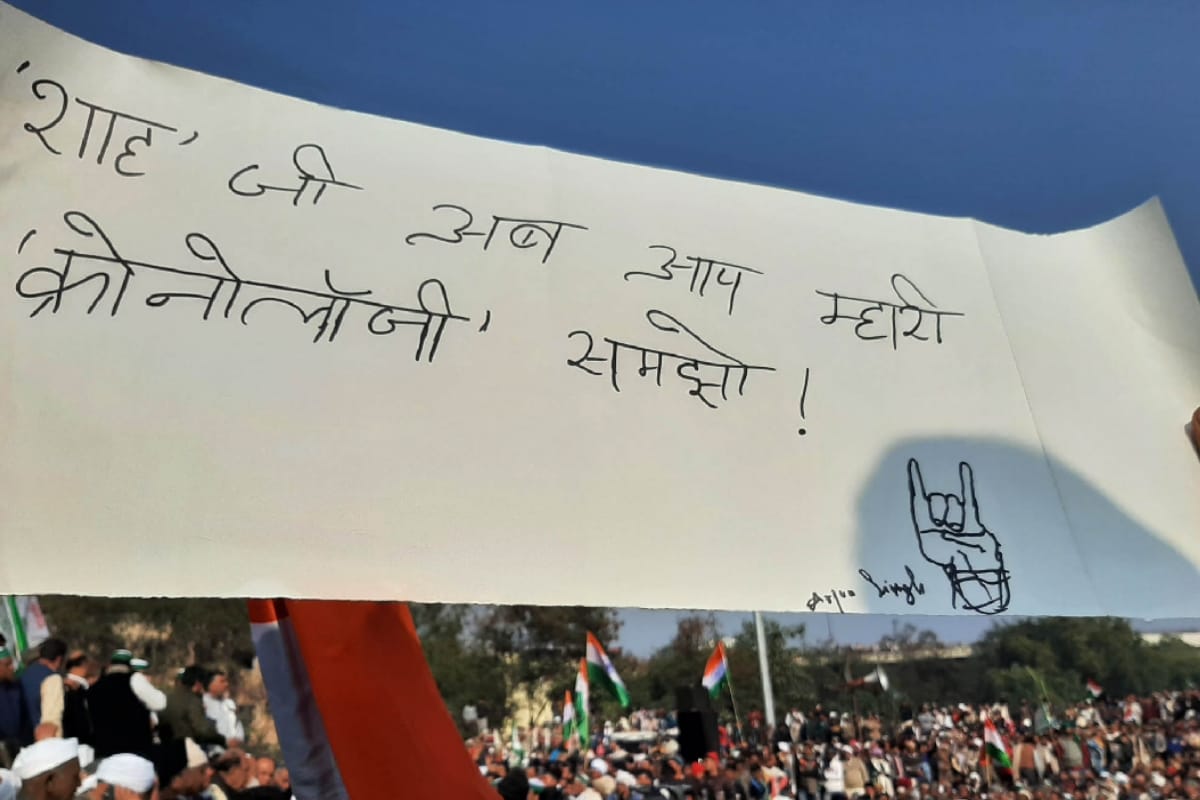 'शाह' जी अब आप म्हारी
'क्रोनोलॉजी' समझो!
Arjun Singh